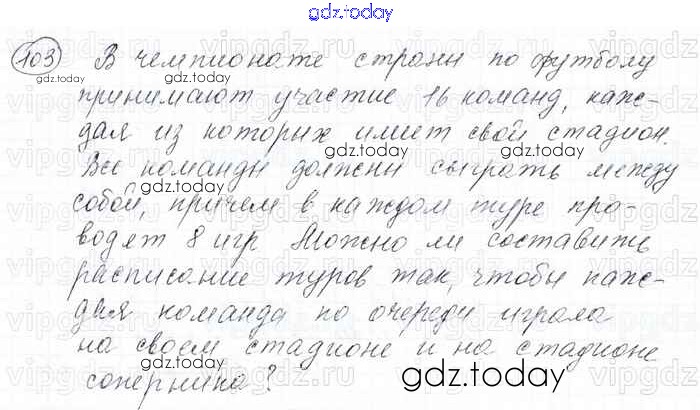 gdz.today
103 В чемпионате страны по футболу
gdz.today gdz.today
принимают участие 16 команд, каж-
дая из которых имеет свой стадион.
gdz.today
Все команды должны сыграть между
gdz.today
собой, причем в каждом туре про-
водят 8 игр Можно ли составить
расписание туров так, чтобы каж-
дая команда по очереди играла
на своем стадионе и на стадионе
соперника?
gdz.today